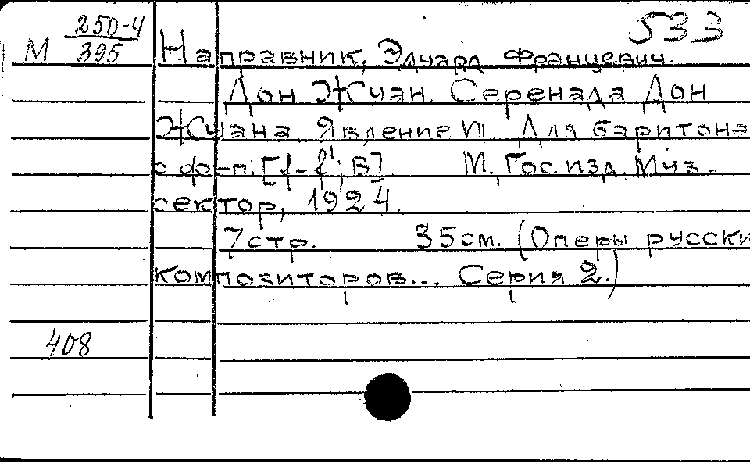 533
М 250-4/395
Направник, Эдуард Францевич.
Дон Жуан. Серенада Дон
Жуана. Явление VI. Для баритона
с ф-п. [f-f¹; B]. М. Гос. изд. Муз.
сектор, 1924.
7 стр. 35 см. (Оперы русски
композиторов... Серия 2.)
408